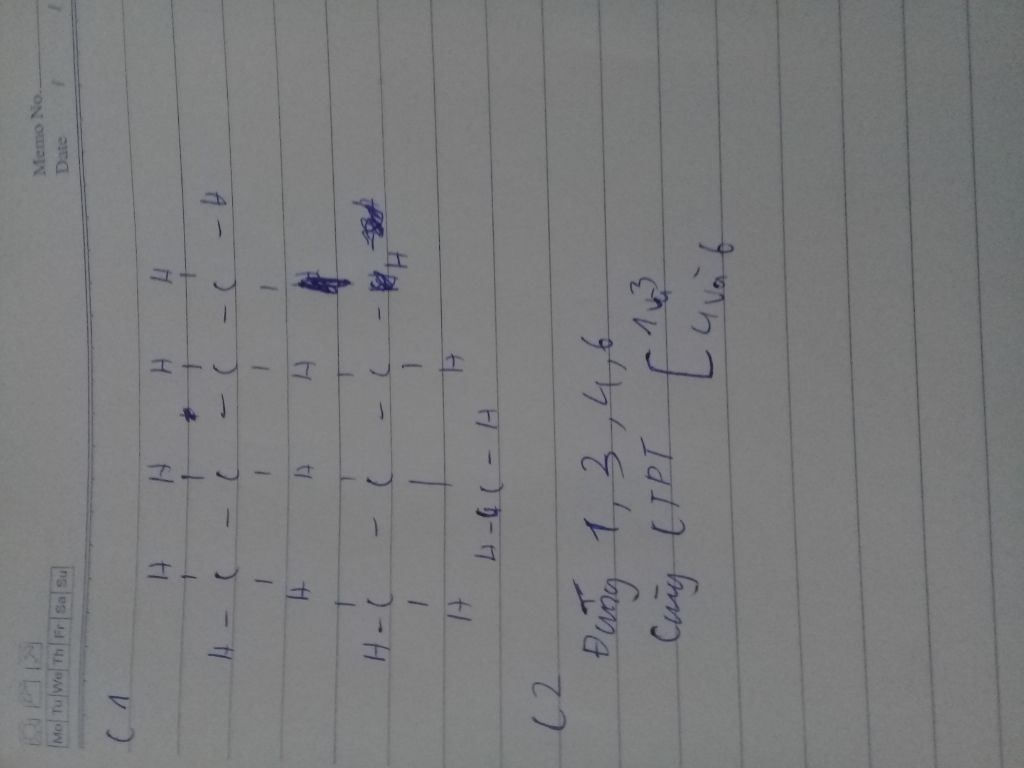 Memo No.
Date / /
Mo Tu We Th Fr Sa Su
C1
H H H H
| | | |
H - C - C - C - C - H
| | | |
H H H
| | |
H - C - C - C - H
| | |
H H
H - C - H
C2
Đúng 1, 3, 4, 6
Cùng CTPT [ 1 và 3
4 và 6